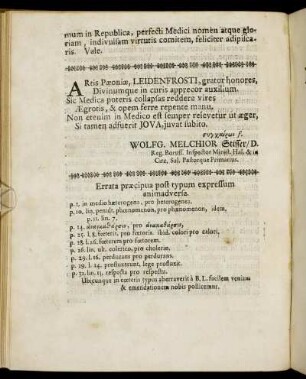 mum in Republica, perfecti Medici nomen atque glo-
riam, individuam virtutis comitem, feliciter adipisca-
ris. Vale.
ARtis Pæoniæ, LEIDENFROSTI, grator honores,
Divinumque in curis apprecor auxilium.
Sic Medica poteris collapsas reddere vires
Ægrotis, & opem ferre repente manu.
Non etenim in Medico est semper relevetur ut æger,
Si tamen adfuerit JOVA, juvat subito.
WOLFG. MELCHIOR Stisser / D.
Reg. Boruss. Inspector Minist. Hall. & in
Circ. Sal. Pastorque Primarius.
Errata præcipua post typum expressum
animadversa.
p. 1. in medio hæterogena, pro heterogenea.
p. 10. lin. penult. phænomenon, pro phænomenon, idem,
p. 11. lin. 7.
p. 14.
p. 25. l. 3. fœteris, pro fœtoris. ibid. calori pro calori,
p. 18. l. 16. fœtorem pro fœtorum.
p. 26. lin. ult. colerico, pro cholerico.
p. 29. l. 16. perducant pro perdurans.
p. 29. l. 24. prostituunt, lege prostent.
p. 31. lin. 15. respecta pro respectu.
Ubicunque in ceteris typus aberraverit à B. L. facilem veniam
& emendationem nobis pollicemur.